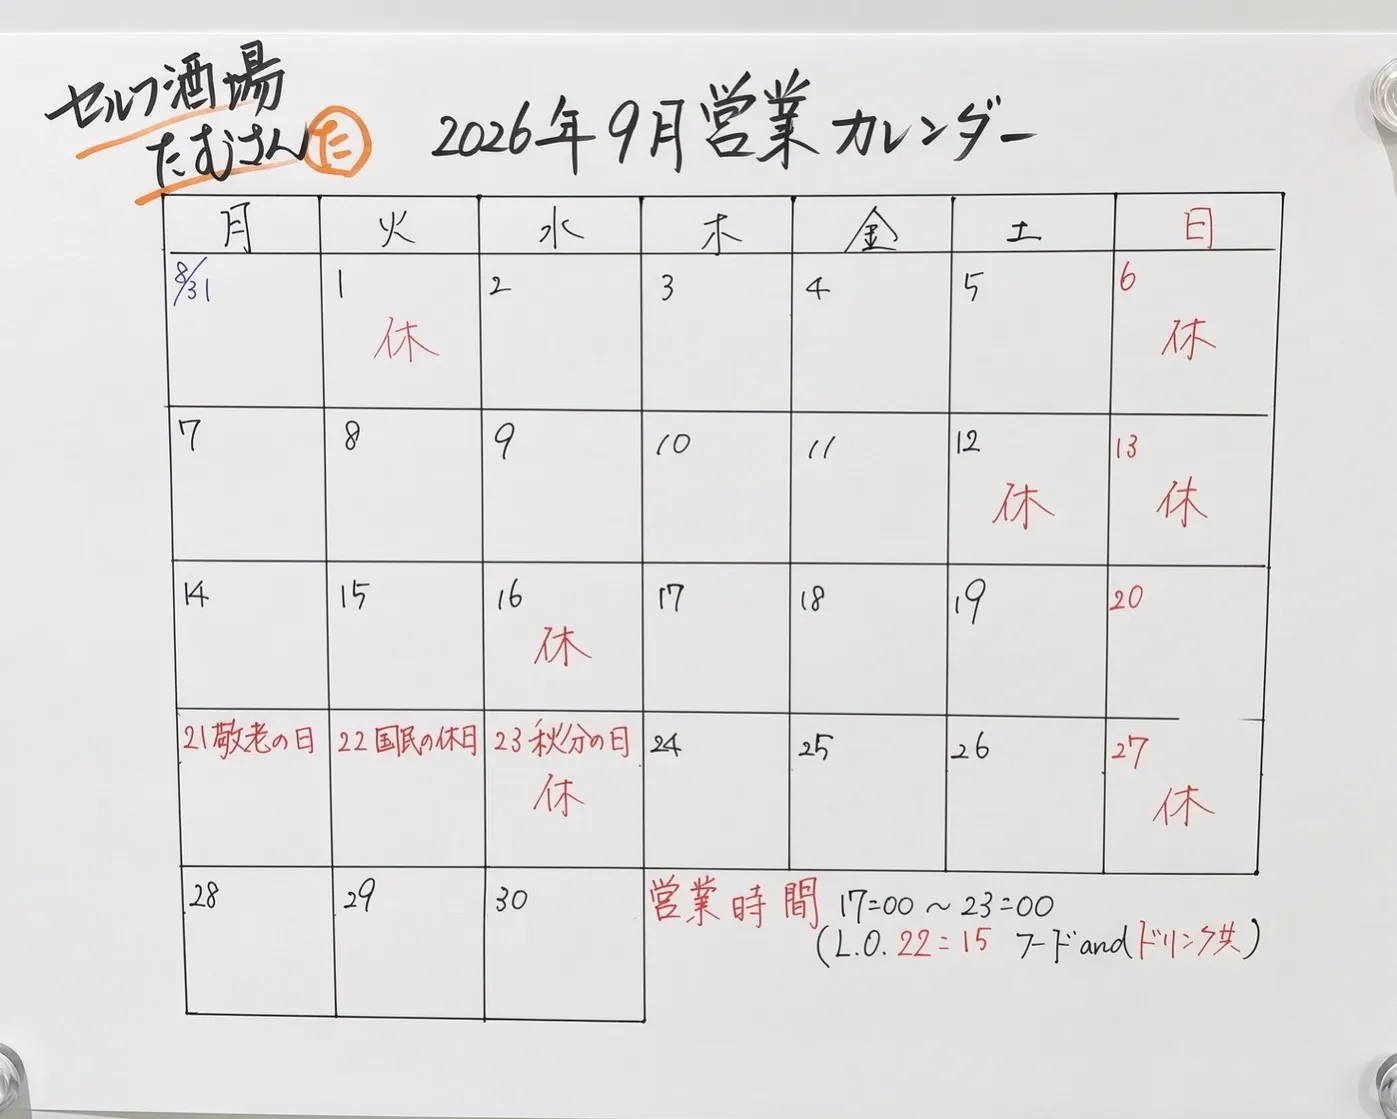 セルフ酒場
たむさん た
2026年9月営業カレンダー
月 火 水 木 金 土 日
8/31 1 2 3 4 5 6
休 休
7 8 9 10 11 12 13
休 休
14 15 16 17 18 19 20
休
21敬老の日 22国民の休日 23秋分の日 24 25 26 27
休 休
28 29 30
営業時間 17:00〜23:00
(L.O. 22:15 フードandドリンク共)